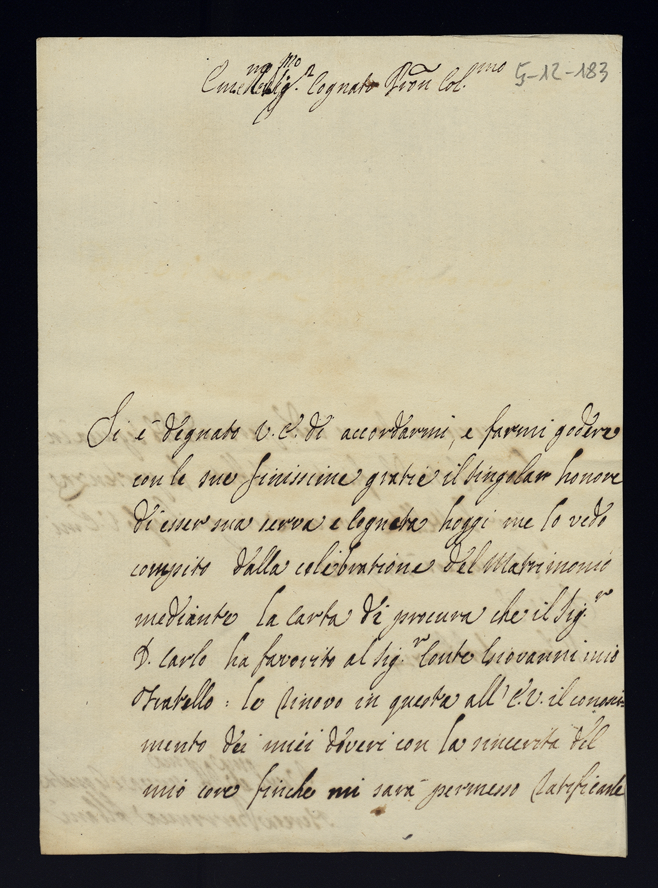 Em.mo Sig.r Cognato Pron Col.mo 5-12-183
Si è degnato V. E. di accordarmi, e farmi godere
con le sue finissime gratie il singolar honore
di esser sua serva e Cognata hoggi me lo vedo
compito dalla celebratione del Matrimonio
mediante la carta di procura che il Sig.r
D. Carlo ha favorito al Sig.r Conte Giovanni mio
Fratello: le rinovo in questa all' E. V. il conosci-
mento dei miei doveri con la sincerità del
mio core finche mi sarà permesso ratificarle